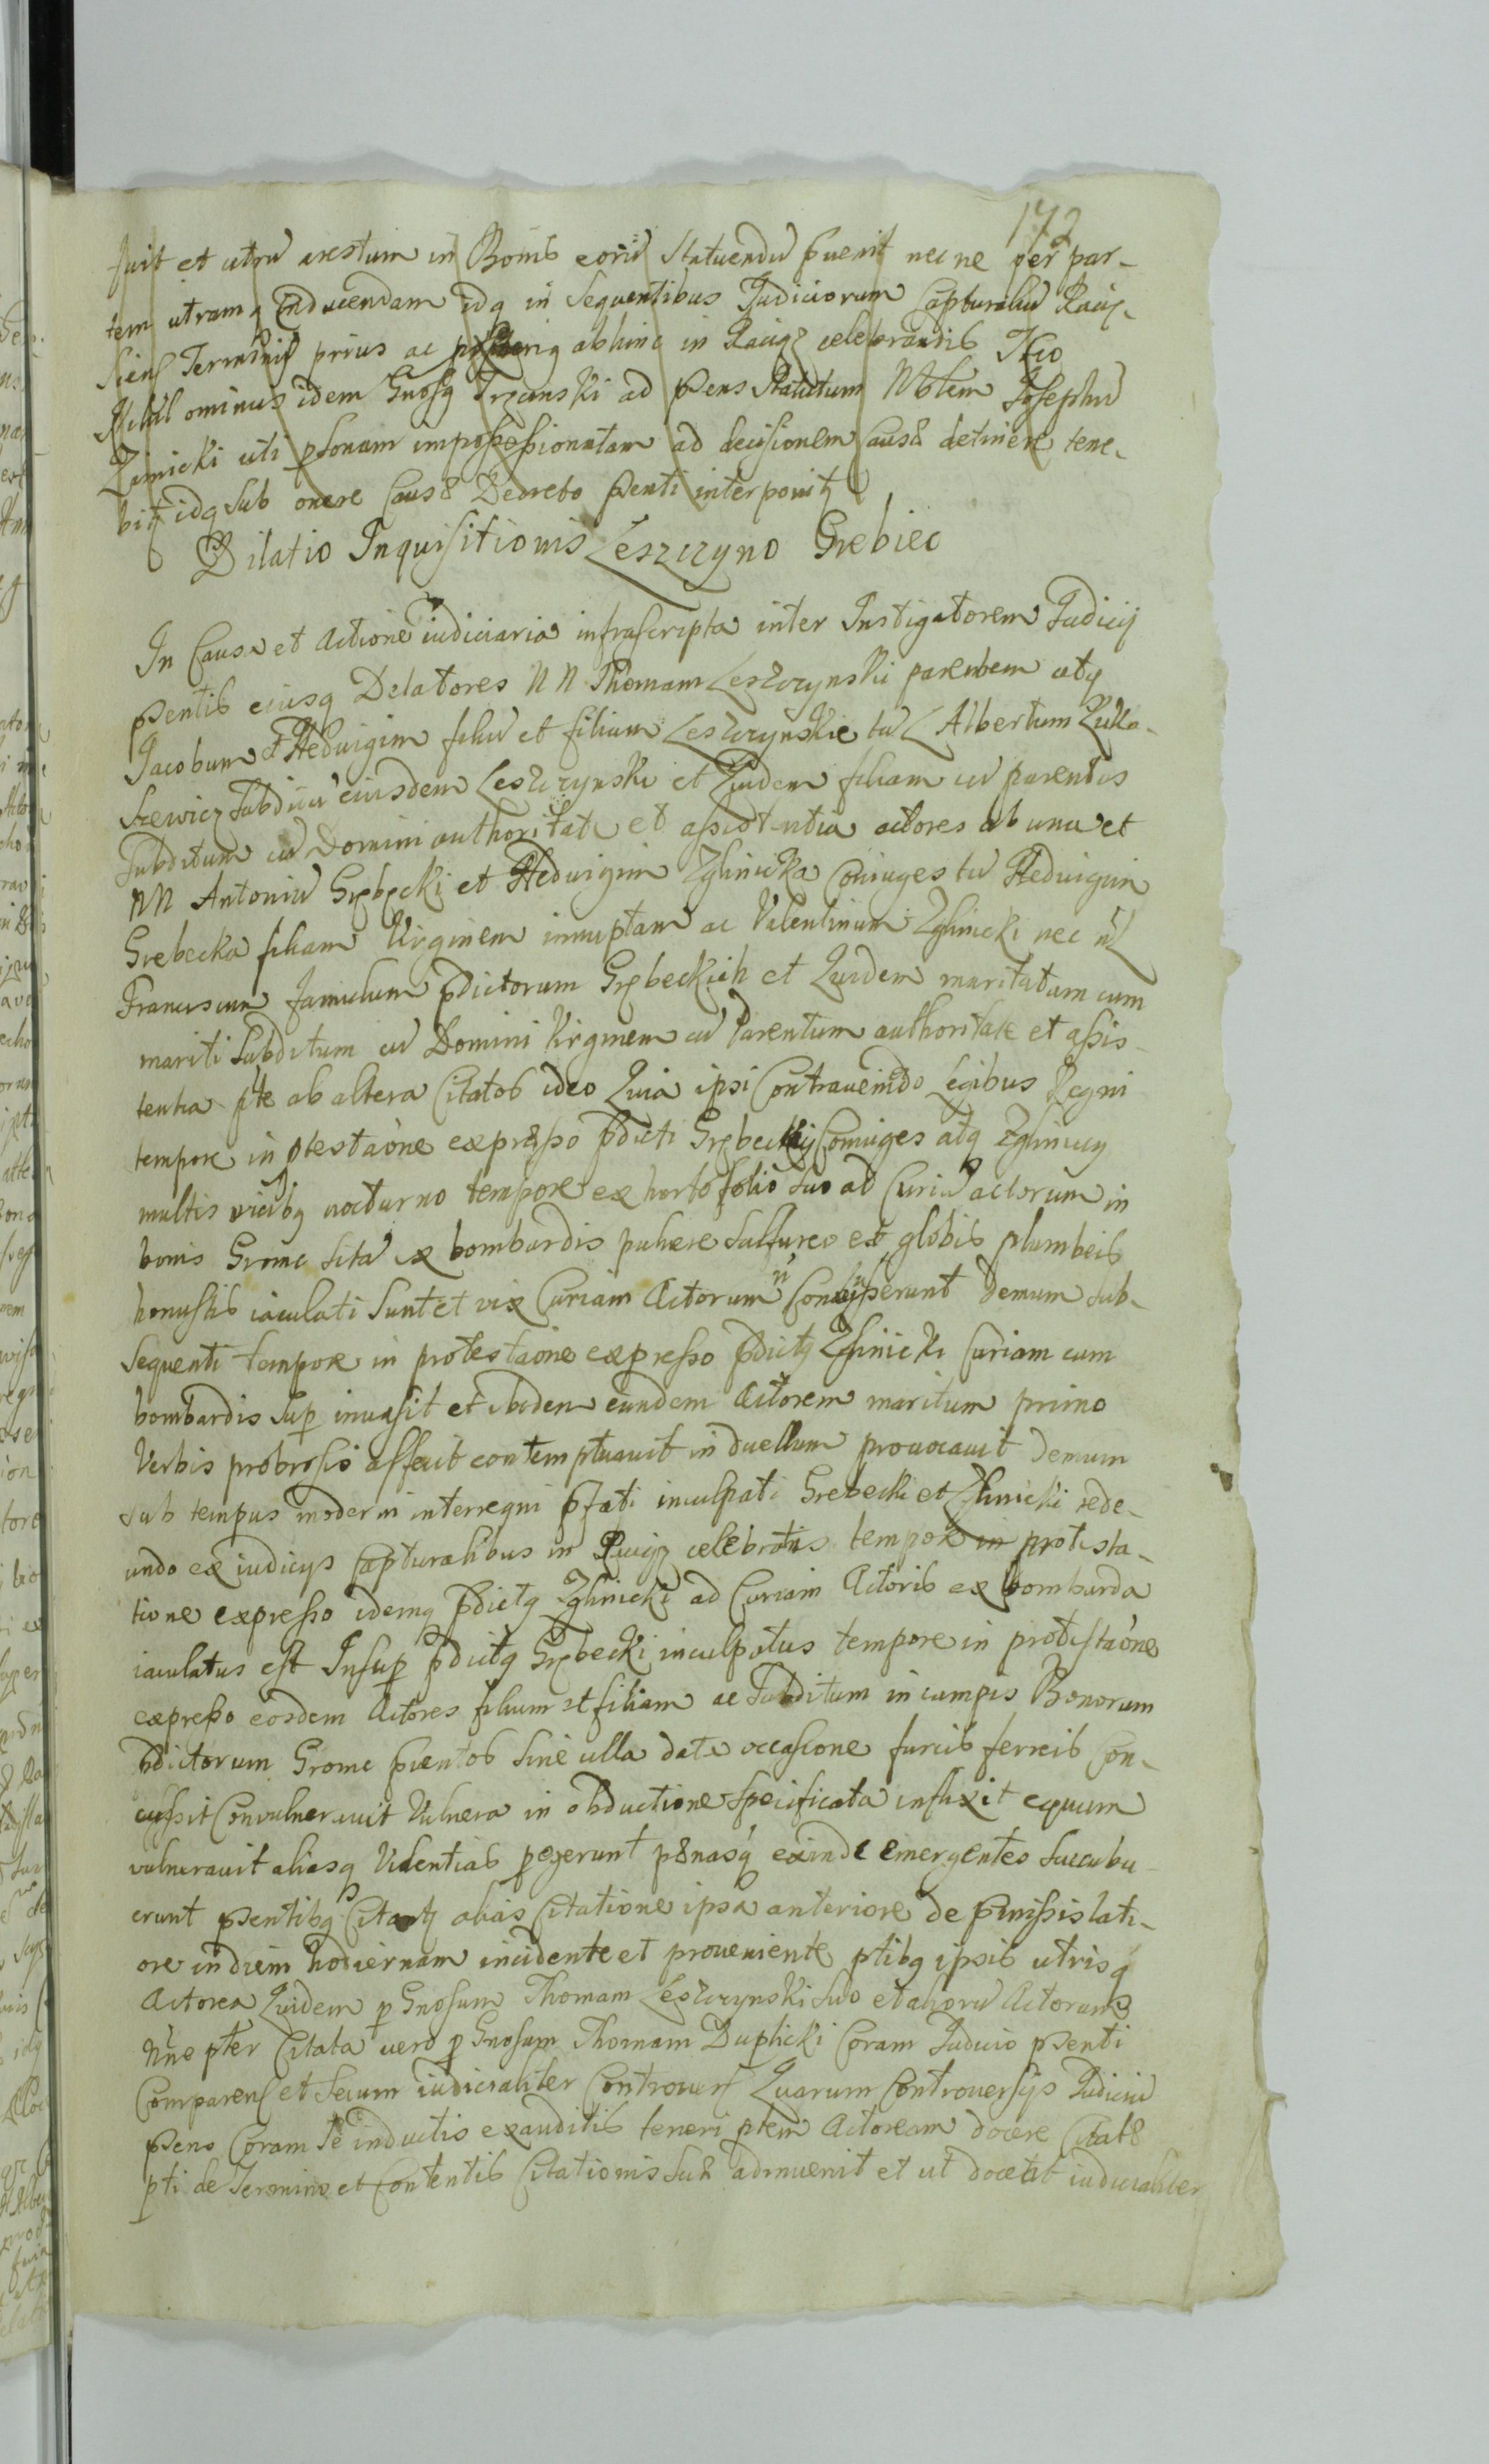 172
fuit et utru arestum in Bonis eoru Statuendu fuerit nec ne per par-
tem utramq Inducendam idq in Sequentibus Judiciorum Capturaliu Raciz-
siens Terminis prius ac abhinc in Raciąz celebrandis
Nihil ominus idem Gnosq Trzcinski ad pens Statutum Nblem Josephu
Zimicki uti psonam impossessionatam ad decisionem Causæ detinere tene-
bit idq sub onere Causæ Decreto psenti interponit
Dilatio Inquisitionis Leszczyno Grebiec
In Causa et Actione iudiciaria infrascripta inter Instigatorem Judicij
psentis eiusq Delatores N N Thomam Leszczynski parentem atq
Jacobum et Hedvigim filiu et filiam Leszczynskie tu Albertum Luka-
szewicz Subditu eiusdem Leszczynski et Quidem filiam cu parentis
Subditum cu Domini authoritate et assistentia actores ab una et
NN Antoniu Grębęcki et Hedvigim Zglinicka Coniuges tu Hedvigim
Grebecka filiam Virginem innuptam ac Valentinum Zglinicki nec n
Franciscum famulum pdictorum Grębeckich et Quidem maritatam cum
mariti Subditum cu Domini Virginem cu Parentum authoritate et assis-
tentia pte ab altera Citatos ideo Quia ipsi Contraveniendo Legibus Regni
tempore in ptestaone expresso pdicti Grębeckij Coniuges atq Zgliniccy
multis vicibq nocturno tempore ex horto folio suo ad Curiu actorum in
bonis Grome sita ex bombardis pulvere sulfureo et globis plumbeis
honustis iaculati Sunt et vix Curiam Actorum n Consumpserunt Demum sub-
sequenti tempore in protestaione expresso pdictq Zglinicki Curiam cum
bombardis sup invasit et ibidem eundem Actorem maritum primo
Verbis probrosis affecit contemptuavit in duellum provocavit Demum
sub tempus moderni interregni pfati inculpati Grebecki et Zglinicki rede-
undo ex iudicijs Capturalibus in Raciąz celebratis tempore in protesta-
tione expresso idemq pdictq Zglinicki ad Curiam Actoris ex bombarda
iaculatus est Insup pdictq Grębecki inculpatus tempore in protestaone
expresso eosdem Actores filium et filiam ac Subditum in campis Bonorum
pdictorum Grome sine ulla data occasione furcis ferreis Con-
cussit Convulneravit Vulnera in obductione specificata inflixit equum
vulneravit aliasq Violentias pegerunt pænasq exinde emergentes succubu-
erunt psentibq Citaotq alias Citatione ipsa anteriore de pmissis lati-
ore in diem hodiernam incidente et proveniente ptibq ipsis utrisq
Actorea Quidem p Gnosum Thomam Leszczynski suo et alioru Actorum
nne pter Citata vero p Gnosum Thomam Duplicki Coram Judicio psenti
Comparens et Secum iudicialiter Controvers Quarum Controversijs Judiciu
psens Coram Se inductis exauditis teneri ptem Actoream docere Citatæ
pti de Termino et Contentis Citationis suæ adinvenit et ut docebit iudicialiter